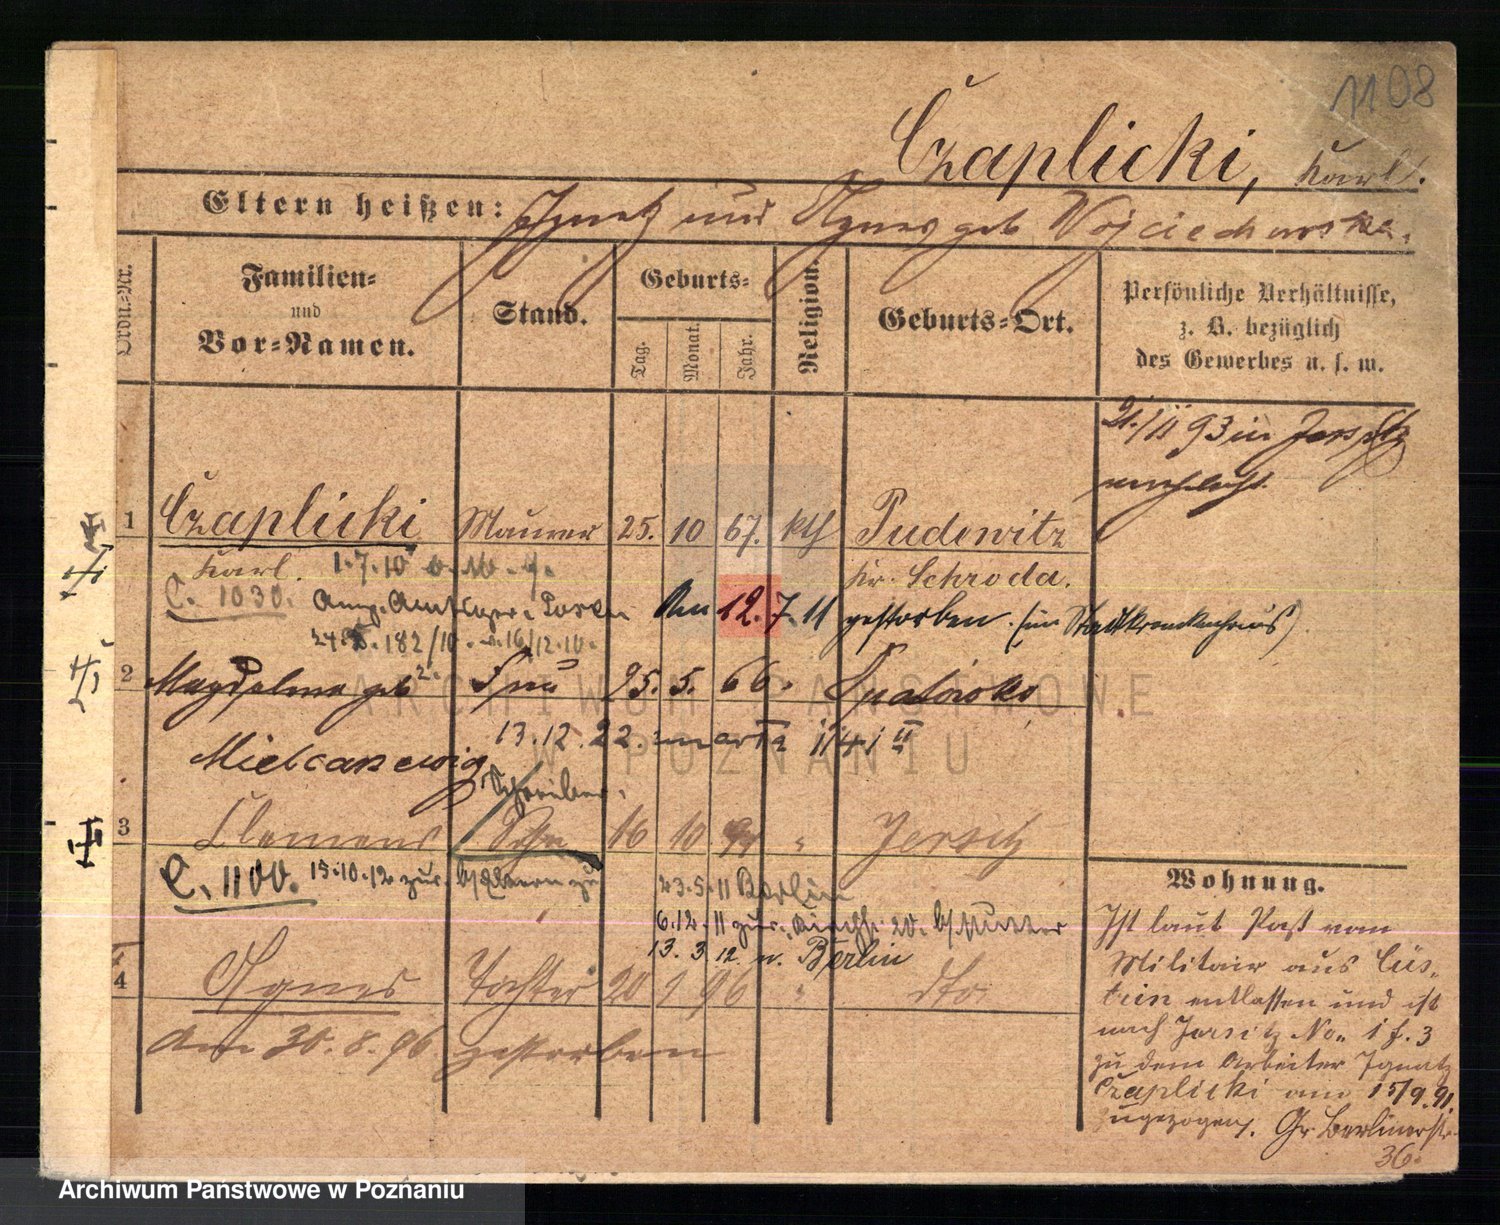 1108
Czaplicki, Karl.
Eltern heißen: Ignatz und Agnes geb Wojciechowska.
Ordn.-Nr.
Familien-
und
Vor-Namen.
Stand.
Geburts-
Tag.
Monat.
Jahr.
Religion.
Geburts-Ort.
Persönliche Verhältnisse,
z. B. bezüglich
des Gewerbes u. s. w.
21/11 93 in Jersitz
1 Czaplicki Maurer 25. 10 67. kth Pudewitz
Karl. 1.7.10 Kr. Schroda.
C. 1030. Am 12.7.11 gestorben. (im Stadtkrankenhaus)
182/10. 16/12.10.
2 Magdalena geb Frau 25. 5. 66.
13.12.22. 1141 II
Mielcarewig
Schreiber.
3 Clemens Sohn 16 10 " Jersitz
C. 1100. 15.10.12 zur. b/Eltern zu
23.5.11 Berlin
6.12.11 zur. 20. b/Mutter
13. 3 12. n. Berlin
4 Agnes Tochter 20 1 96 " dto.
Am 30.8.96 gestorben
Wohnung.
Ist laut Paß vom
Militair aus Cüs-
trin entlassen und ist
nach Jersitz No. 1 f. 3
zu dem Arbeiter Ignatz
Czaplicki am 15/9.91.
zugezogen. Gr. Berlinerstr.
36.
ARCHIWUM PAŃSTWOWE
W POZNANIU
Archiwum Państwowe w Poznaniu